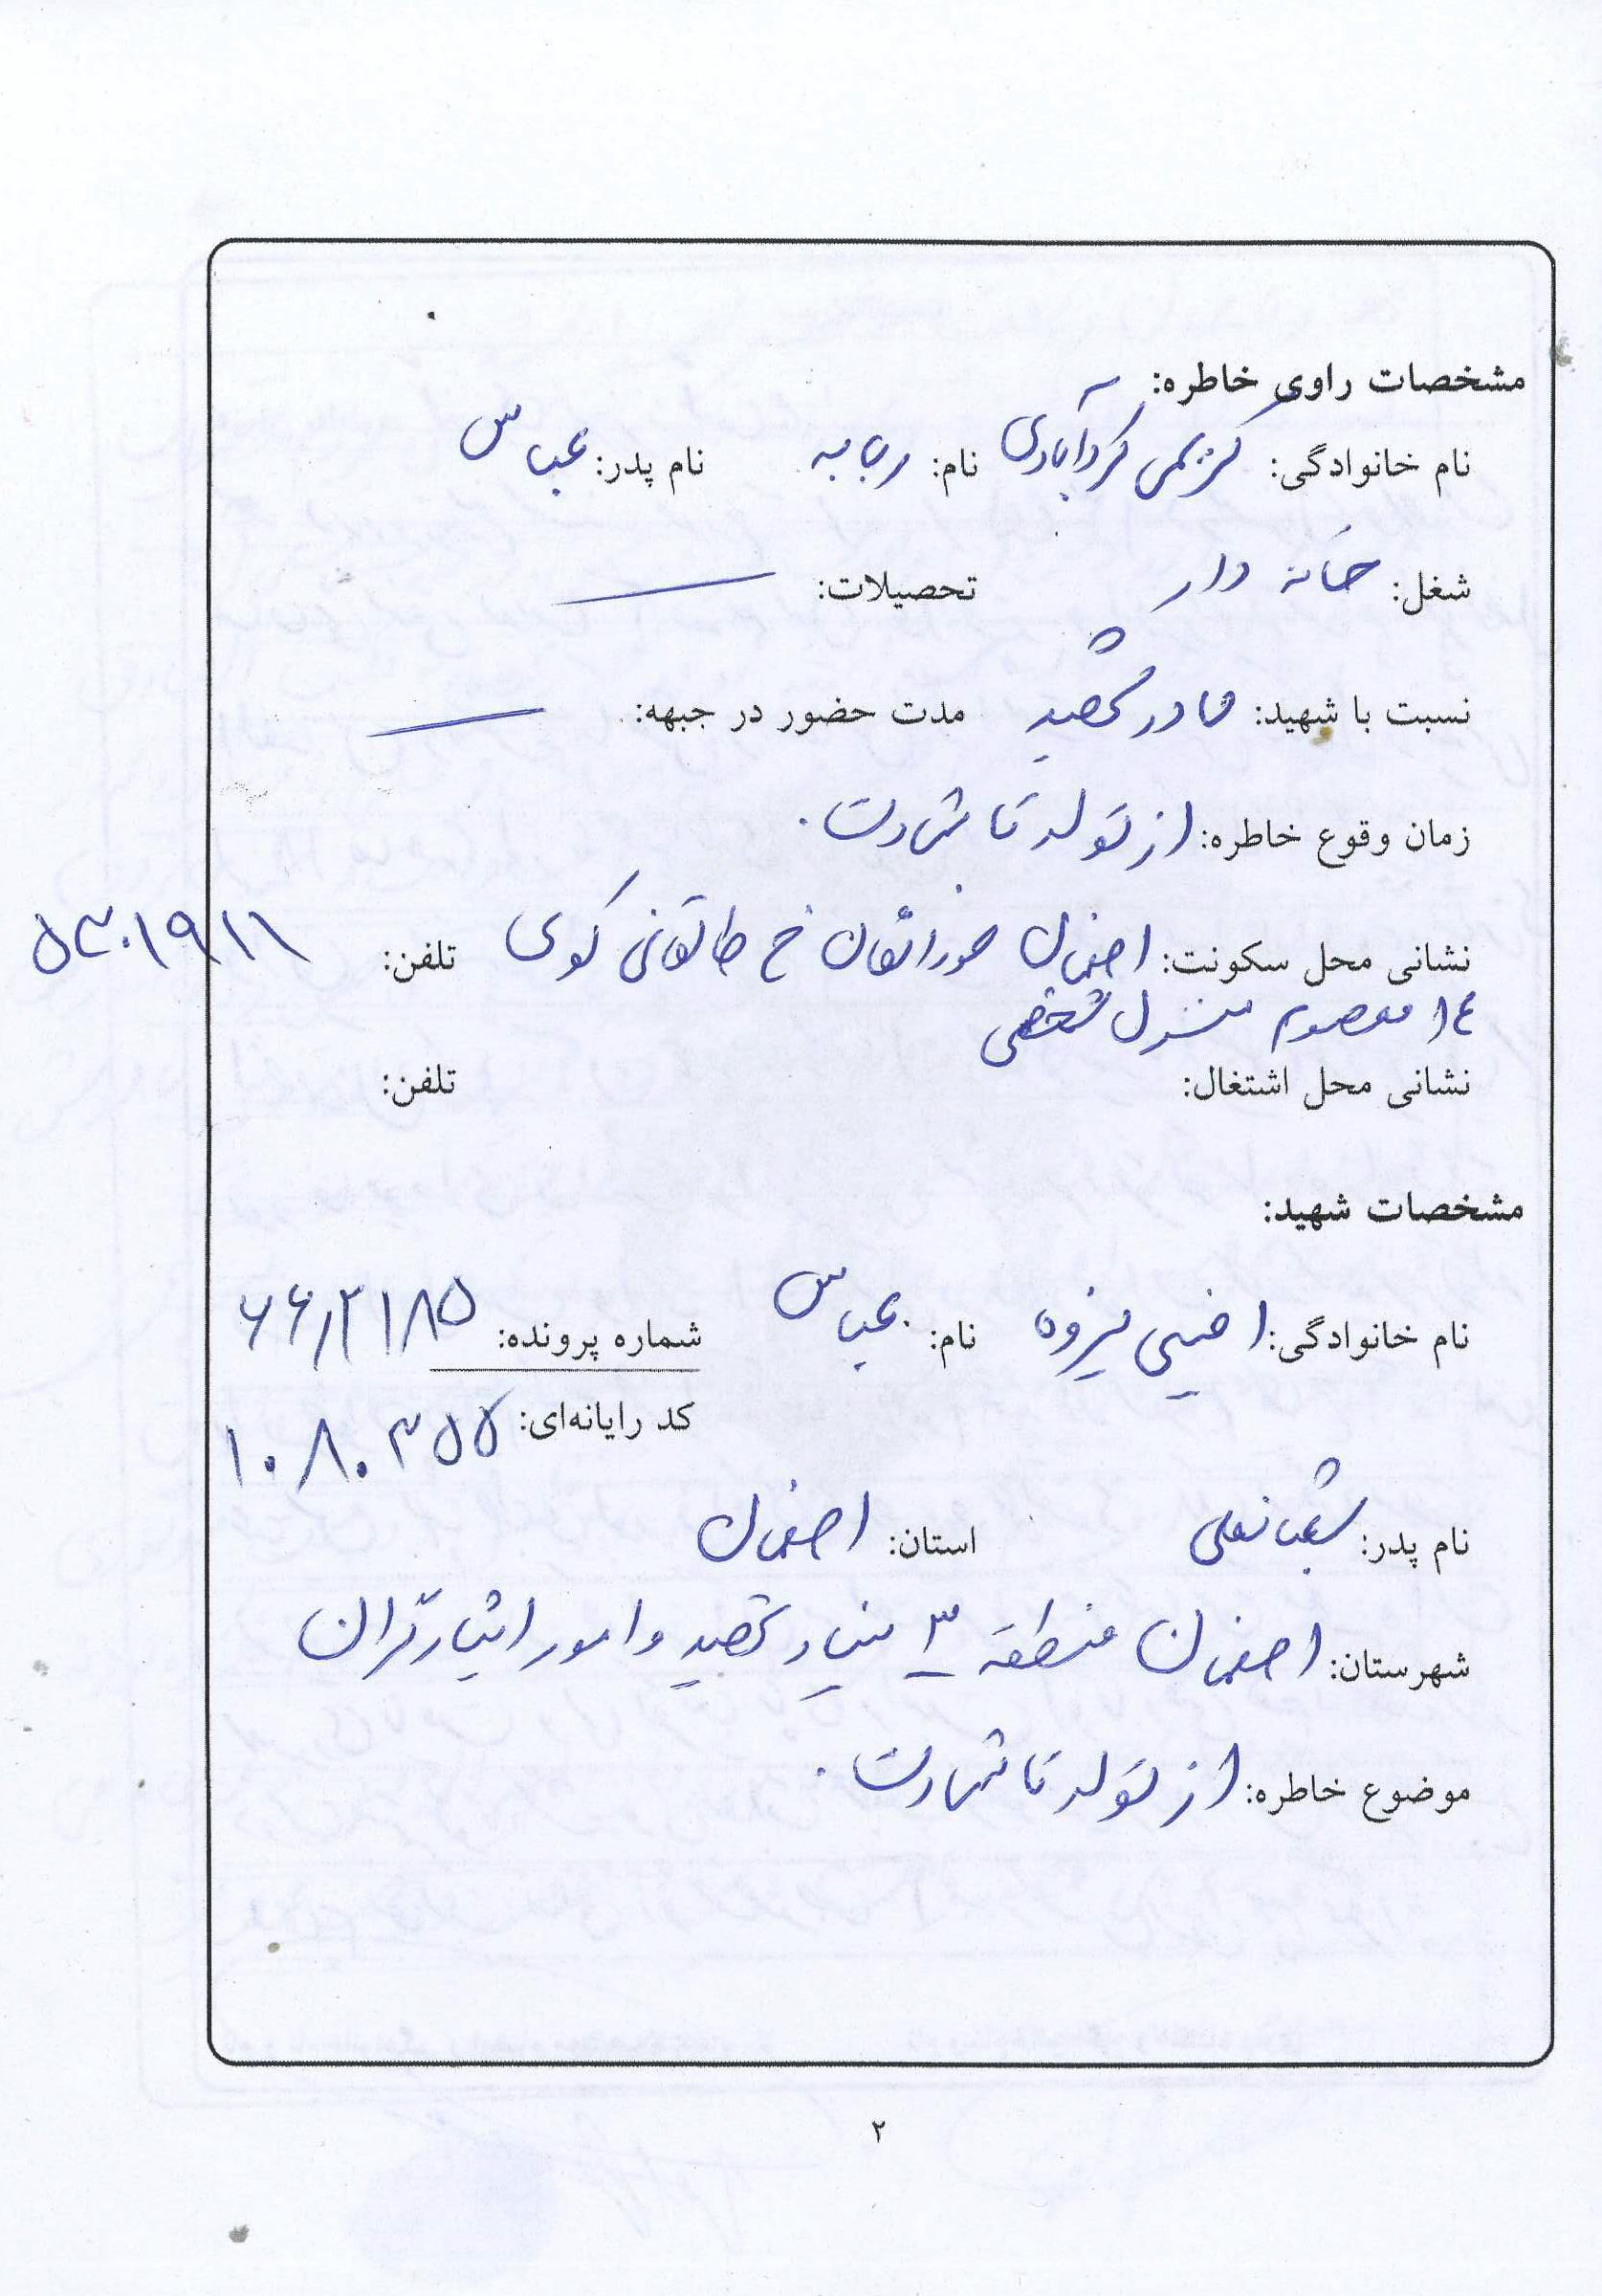 مشخصات راوی خاطره:
نام خانوادگی: کریمی گردآبادی نام: ربابه نام پدر: عباس
شغل: خانه دار تحصیلات: ــــ
نسبت با شهید: مادر شهید مدت حضور در جبهه: ــــ
زمان وقوع خاطره: از تولد تا شهادت.
نشانی محل سکونت: اصفهان خوراسگان خ طالقانی کوی تلفن: ۵۳۰۱۹۱۱
۱۴ معصوم منزل شخصی
نشانی محل اشتغال: تلفن:
مشخصات شهید:
نام خانوادگی: نام: عباس شماره پرونده: ۶۶/۲۱۸۵
کد رایانه‌ای: ۱۰۸۰۳۵۵
نام پدر: شعبانعلی استان: اصفهان
شهرستان: اصفهان منطقه ۳ بنیاد شهید و امور ایثارگران
موضوع خاطره: از تولد تا شهادت.
۲